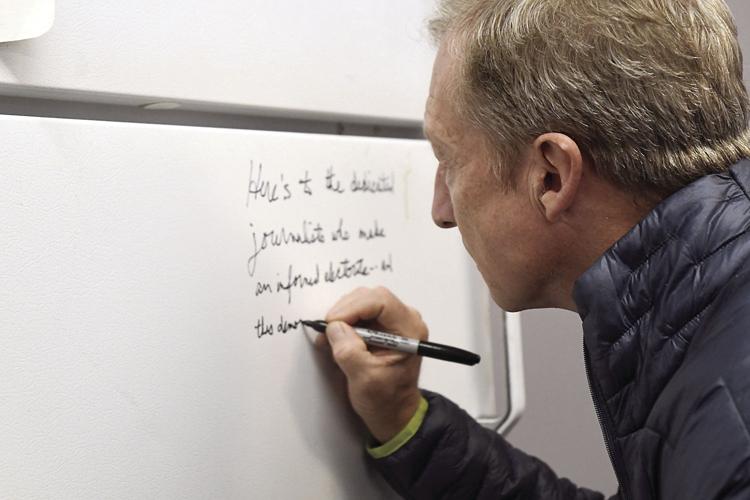 Here's to the dedicated
journalists who make
an informed electorate -- and
this demo